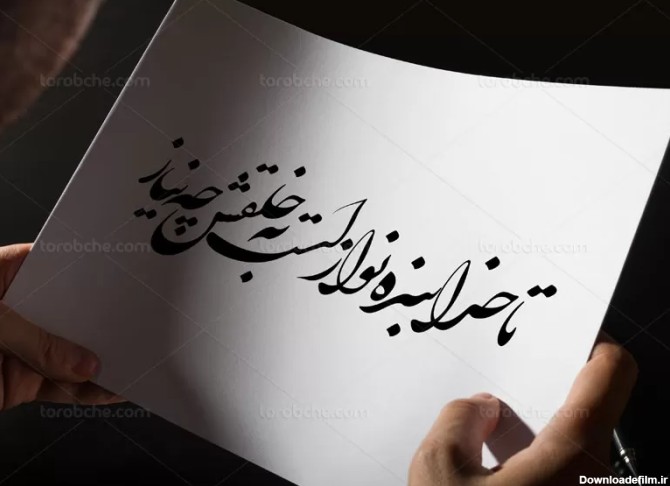 torobche.com torobche.com torobche.com
تا خدا بنده نواز است به خلقش چه نیاز
torobche.com torobche.com torobche.com
torobche.com torobche.com torobche.com
Downloadefilm.ir